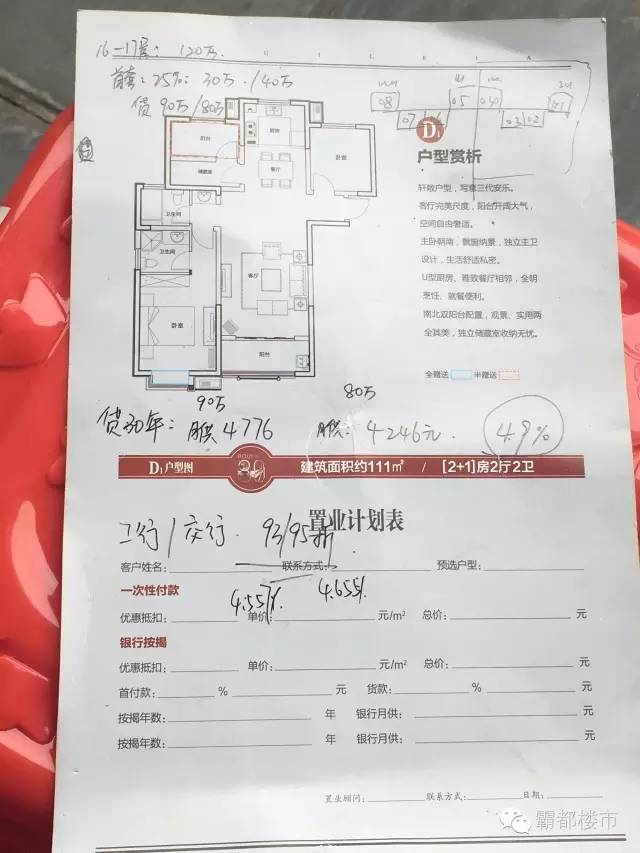 16-17层: 120万.
首套: 25%: 30万 / 40万
贷 90万/80万
08
07
05
04
03
02
01
D1
户型赏析
轩敞户型，写意三代安乐。
客厅完美尺度，阳台开阔大气，
空间自由奢适。
主卧朝南，飘窗纳景，独立主卫
设计，生活舒适私密。
U型厨房、雅致餐厅相邻，全明
烹饪、就餐便利。
南北双阳台配置，观景、实用两
全其美，独立储藏室收纳无忧。
全赠送
半赠送
阳台
厨房
卧室
储藏室
餐厅
卫生间
卫生间
客厅
卧室
阳台
90万
80万
贷30年: 月供 4776
月供: 4246元.
4.9%
D1户型图
建筑面积约111㎡ / [2+1]房2厅2卫
置业计划表
工行/农行. 93/95折
客户姓名: 联系方式: 预选户型:
一次性付款
4.557%.
4.655%
优惠折扣: 单价: 元/m² 总价: 元
银行按揭
优惠折扣: 单价: 元/m² 总价: 元
首付款: % 元 贷款: % 元
按揭年数: 年 银行月供: 元
按揭年数: 年 银行月供: 元
置业顾问: 联系方式: 日期:
霸都楼市